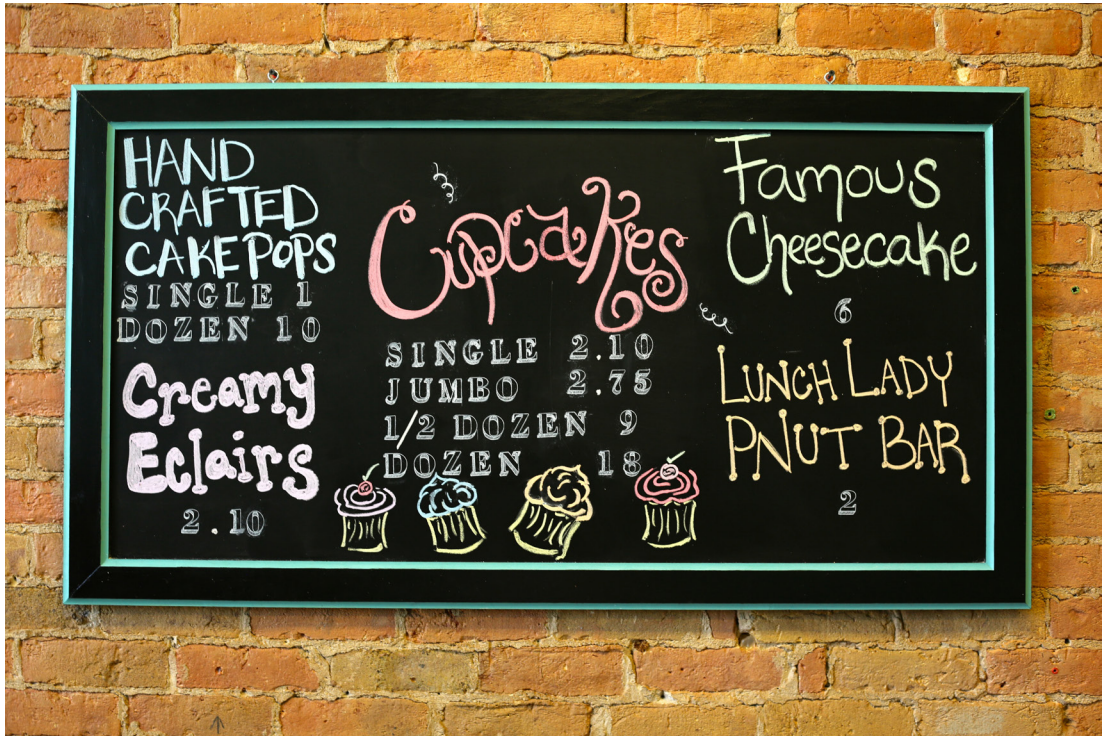 HAND
CRAFTED
CAKE POPS
SINGLE 1
DOZEN 10
Creamy
Eclairs
2.10
Cupcakes
SINGLE 2.10
JUMBO 2.75
1/2 DOZEN 9
DOZEN 18
Famous
Cheesecake
6
LUNCH LADY
PNUT BAR
2